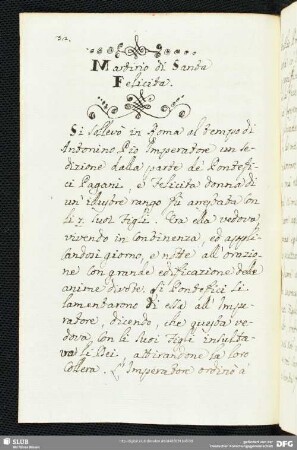 312.
Martirio di Santa
Felicita.
Si sollevò in Roma al tempo di
Antonino Pio Imperatore un se-
dizione dalla parte de' Pontefi-
ci Pagani, e Felicita donna di
un' illustre rango fù arrestata con
li 7. suoi Figli. Era ella vedova
vivendo in Continenza, ed appli-
candosi giorno, e notte all' orazio-
ne con grande edificazione delle
anime divote. Li Pontefici si
lamentarono di ella all' Impe-
ratore, dicendo, che questa ve-
dova con li suoi Figli insulta-
va li Dei, attirandone la loro
Collera. L'Imperatore ordinò a
SLUB
Wir führen Wissen.
DFG